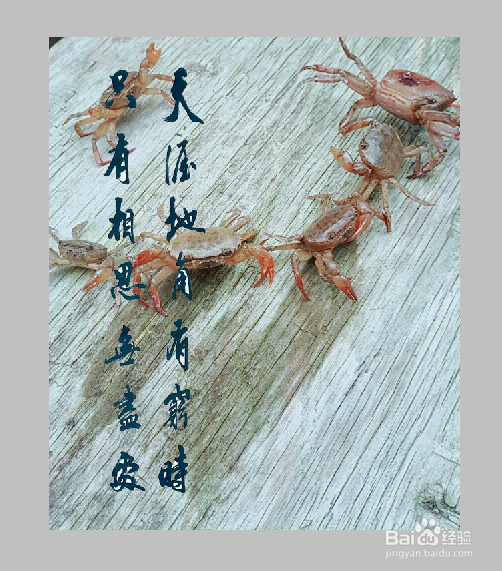 天涯地角有窮時
只有相思無盡處
Baidu经验
jingyan.baidu.com